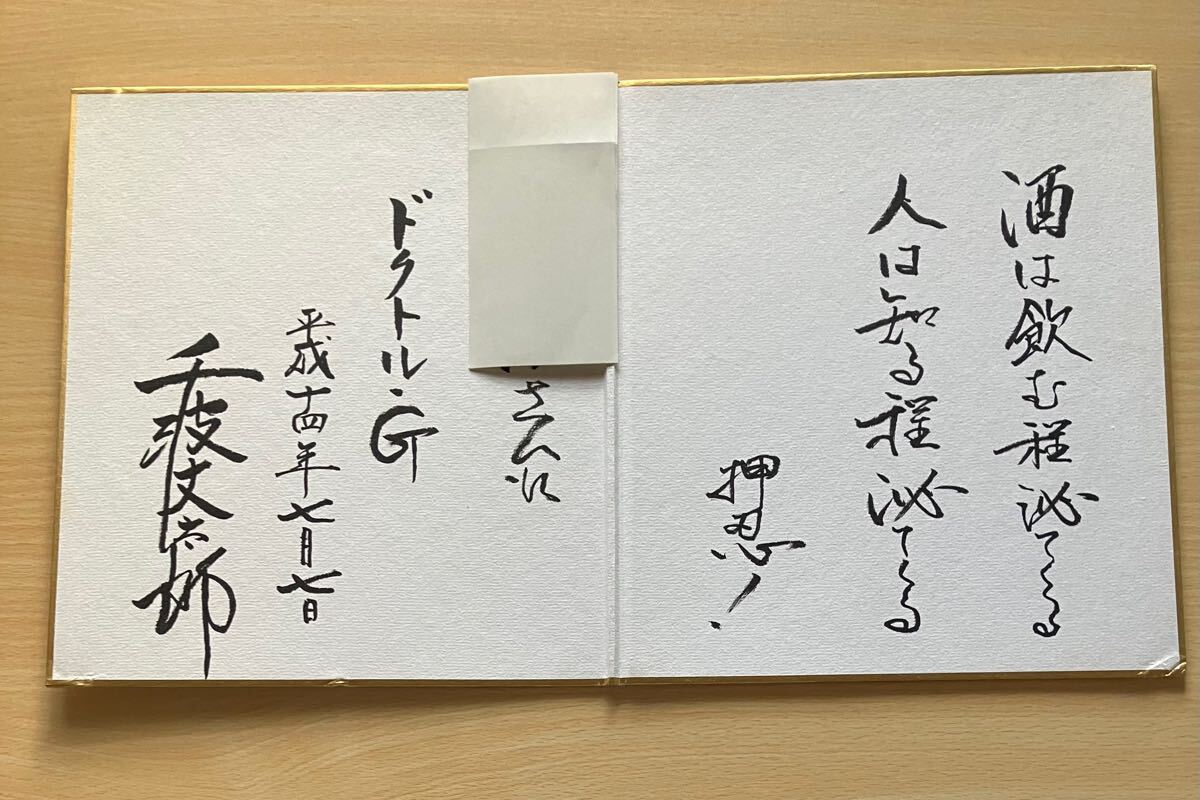 酒は飲む程泌てくる
人は知る程泌てくる
押忍!
さん
ドクトル・G
平成十四年七月七日
千波丈太郎